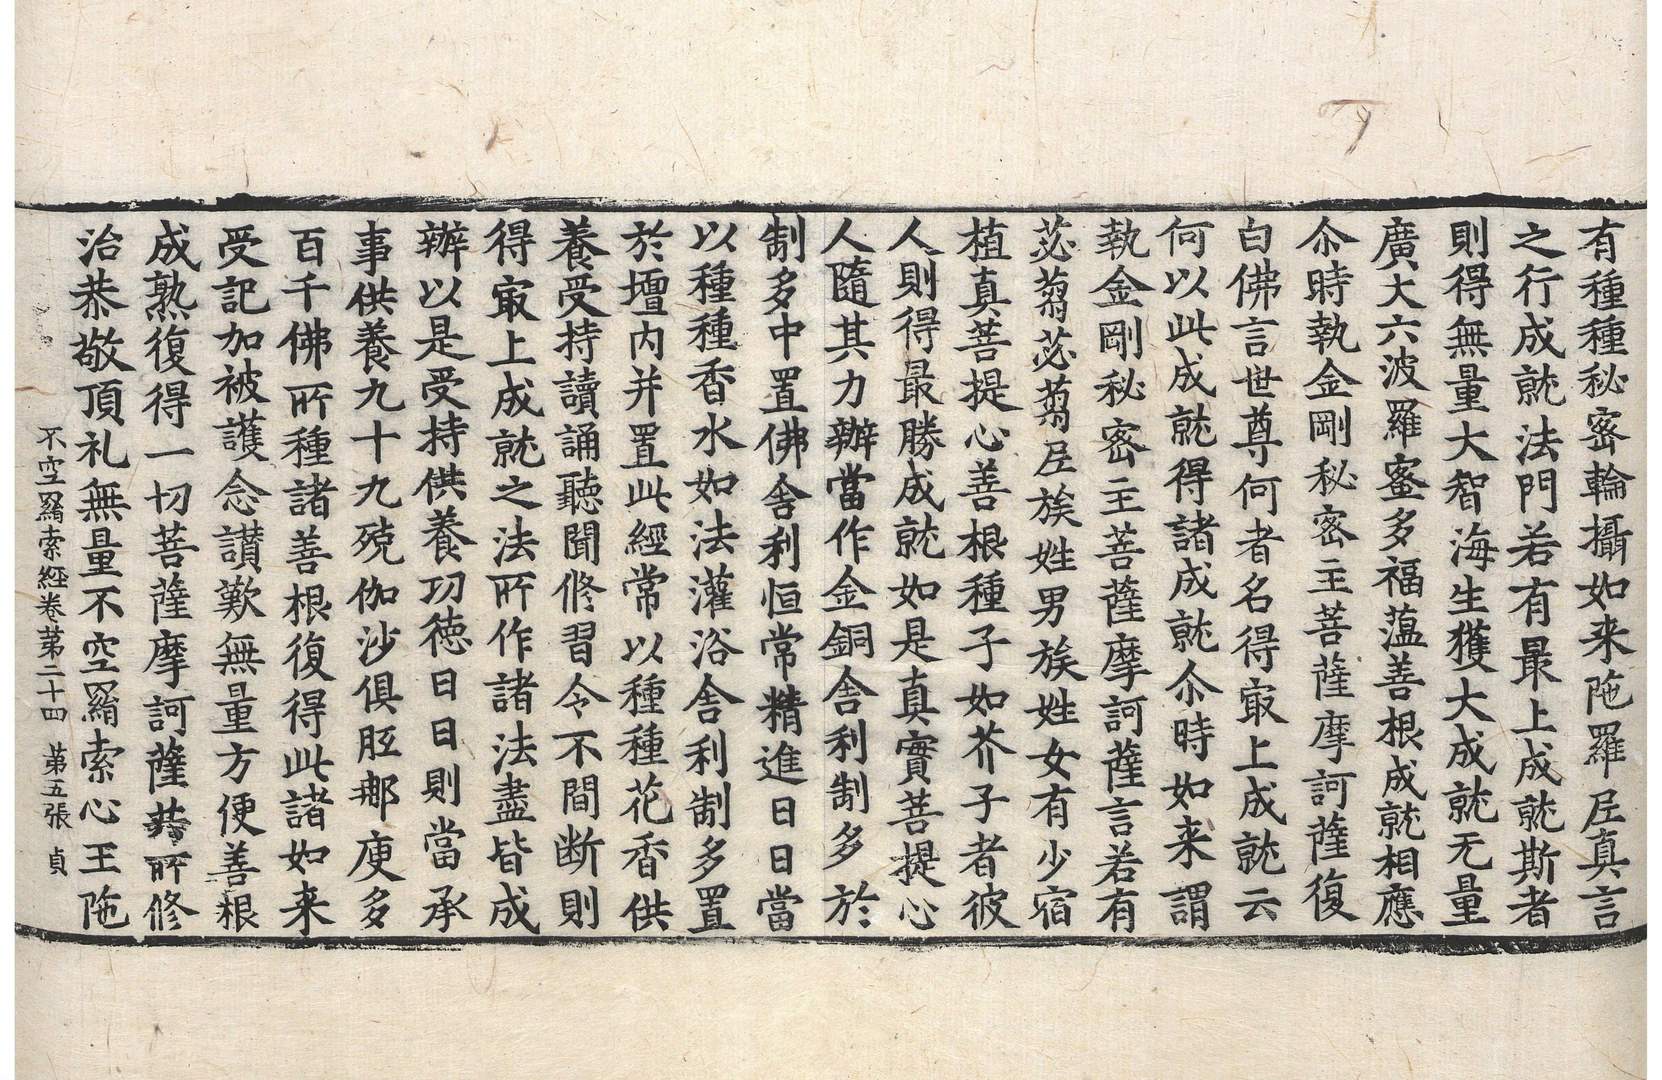 有種種秘密輪攝如来陁羅𡰱真言
之行成就法門若有最上成就斯者
則得無量大智海生獲大成就无量
廣大六波羅蜜多福蕰善根成就相應
尒時執金剛秘密主菩薩摩訶薩復
白佛言世尊何者名得㝡上成就云
何以此成就得諸成就尒時如来謂
執金剛秘密主菩薩摩訶薩言若有
苾蒭苾蒭𡰱族姓男族姓女有少宿
植真菩提心善根種子如芥子者彼
人則得最勝成就如是真實菩提心
人隨其力辦當作金銅舍利制多於
制多中置佛舍利恒常精進日日當
以種種香水如法灌浴舍利制多置
於壇内并置此經常以種種花香供
養受持讀誦聽聞修習令不間断則
得㝡上成就之法所作諸法盡皆成
辦以是受持供養功徳日日則當承
事供養九十九殑伽沙俱胝那庾多
百千佛所種諸善根復得此諸如来
受記加被護念讃歎無量方便善根
成熟復得一切菩薩摩訶薩等所修
治恭敬頂礼無量不空羂索心王陁
不空羂索經卷苐二十四 苐五張 貞